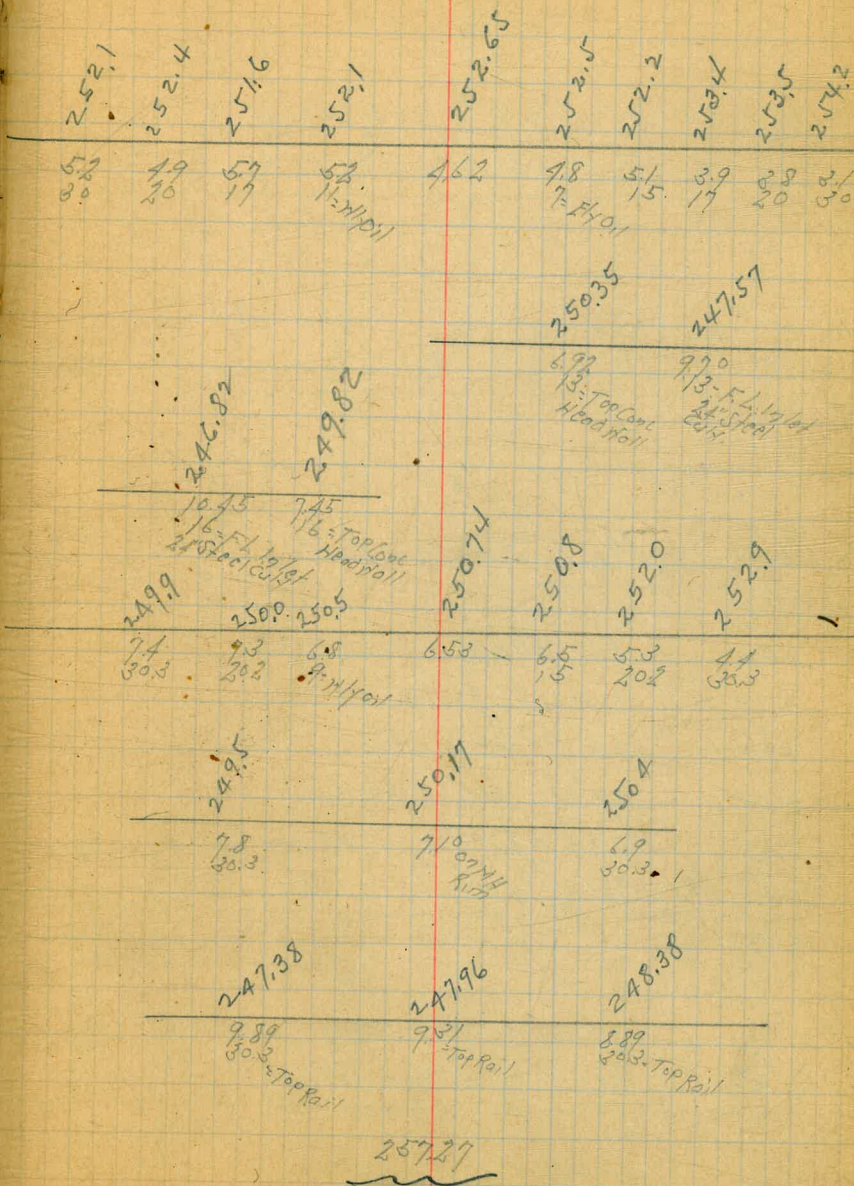 252.1 252.4 251.6 252.1 252.65 252.5 252.2 253.4 253.5 254.2
5.2 4.9 5.7 5.2 4.62 4.8 5.1 3.9 3.8 3.1
30 20 17 11=Wlyoil 7=Elyoil 15 17 20 30
250.35 247.57
6.92 9.70
13=Top Conc 13=F.L. Inlet
Head Wall 24" Steel
Culv.
246.82 249.82
10.45 7.45
16=F.L. Inlet 16=Top Conc
24" Steel Culvt Head Wall
249.9 250.0 250.5 250.74 250.8 252.0 252.9
7.4 7.3 6.8 6.53 6.5 5.3 4.4
30.3 20.2 9=Wlyoil 15 20.2 30.3
249.5 250.17 250.4
7.8 7.10 6.9
30.3 on MH 30.3
Rim
247.38 247.96 248.38
9.89 9.31 8.89
30.3 =Top Rail 30.3=Top Rail
=Top Rail
257.27